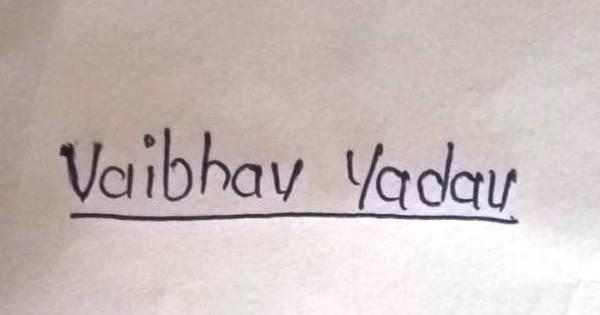 Vaibhav Yadav